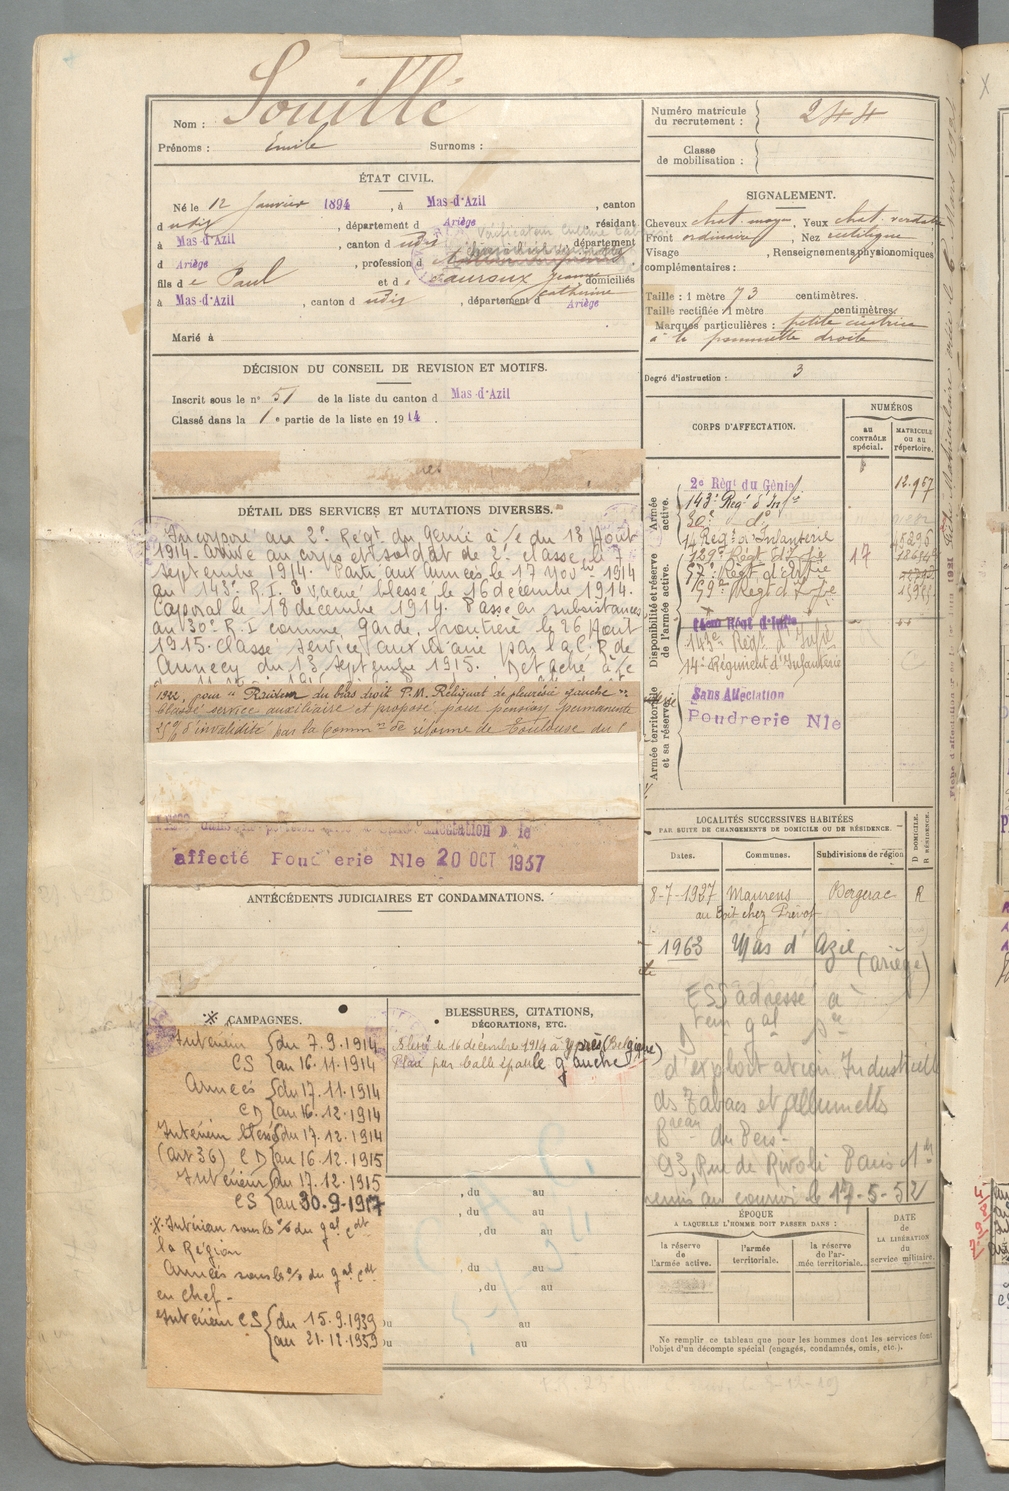 Souillé
Nom :
Prénoms : Emile Surnoms :
ÉTAT CIVIL.
Né le 12 Janvier 1894, à Mas-d'Azil, canton
d udit, département d Ariège résidant
à Mas-d'Azil, canton d udit département
d Ariège, profession d
fils de Paul et de Lauroux Jeanne domiciliés
Catherine
à Mas-d'Azil, canton d udit, département d Ariège
Marié à
DÉCISION DU CONSEIL DE REVISION ET MOTIFS.
Inscrit sous le n° 51 de la liste du canton d Mas-d'Azil
Classé dans la 1e partie de la liste en 1914.
DÉTAIL DES SERVICES ET MUTATIONS DIVERSES.
Incorporé au 2e Régt du Génie à /c du 18 Août
1914. Arrivé au corps et soldat de 2e classe le 7
septembre 1914. Parti aux armées le 17 novbre 1914
au 143e R.I. Evacué blessé le 16 décembre 1914.
Caporal le 18 décembre 1914. Passé en subsistances
au 30e R.I comme garde frontière le 26 Août
1915. Classé service auxiliaire par la C.R de
Annecy du 13 septembre 1915. Détaché à /c
1922, pour "Raideur du bras droit P.M. Reliquat de pleurésie gauche"
Classé service auxiliaire et proposé pour pension permanente
25% d'invalidité par la Common de réforme de Toulouse du
affecté Poudrerie Nle 20 OCT 1937
ANTÉCÉDENTS JUDICIAIRES ET CONDAMNATIONS.
CAMPAGNES.
Intérieur du 7.9.1914
CS au 16.11.1914
Armées du 17.11.1914
CD au 16.12.1914
Intérieur blessé du 17.12.1914
(art 36) CD au 16.12.1915
Intérieur du 17.12.1915
CS au 30.9.1917
Intérieur sous les o/ du gal cdt
la Région
Armées sous les o/ du gal cdt
en chef -
Intérieur CS du 15.9.1939
au 21.12.1939
BLESSURES, CITATIONS,
DÉCORATIONS, ETC.
Blessé le 16 décembre 1914 à Ypres (Belgique)
Plaie par balle épaule gauche
, du au
, du au
, du au
, du au
, du au
au
au
Numéro matricule
du recrutement : 244
Classe
de mobilisation :
SIGNALEMENT.
Cheveux chat. moyen, Yeux chat. verdatre
Front ordinaire, Nez rectiligne
Visage , Renseignements physionomiques
complémentaires :
Taille : 1 mètre 73 centimètres.
Taille rectifiée : 1 mètre centimètres.
Marques particulières : petite cicatrice
à la pommette droite
Degré d'instruction : 3
CORPS D'AFFECTATION.
NUMÉROS
au CONTRÔLE spécial.
MATRICULE ou au répertoire.
Armée active.
2e Régt du Génie 12.967
143e Régt d'Infie
30e do
14 Reg. d'Infanterie
Disponibilité et réserve de l'armée active.
129e Régt d'Infie 17
57e Régt d'Infie
59e Régt d'Infie
143e Régt d'Infie
14e Régiment d'Infanterie
Armée territoriale et sa réserve.
Sans Affectation
Poudrerie Nle
LOCALITÉS SUCCESSIVES HABITÉES
PAR SUITE DE CHANGEMENTS DE DOMICILE OU DE RÉSIDENCE.
D DOMICILE.
R RÉSIDENCE.
Dates. Communes. Subdivisions de région
8-7-1937 Maurens Bergerac R
au Boit chez Prévot
1963 Mas d'Azil
(Ariège)
ESS adressé à
d'exploitation Industrielle
ds Tabacs et Allumetts
Beau du Pers -
93, Rue de Rivoli Paris 1er
remis au courroi le 17-5-52
ÉPOQUE
A LAQUELLE L'HOMME DOIT PASSER DANS :
la réserve de l'armée active.
l'armée territoriale.
la réserve de l'armée territoriale.
DATE de LA LIBÉRATION du service militaire.
Ne remplir ce tableau que pour les hommes dont les services font
l'objet d'un décompte spécial (engagés, condamnés, omis, etc.).